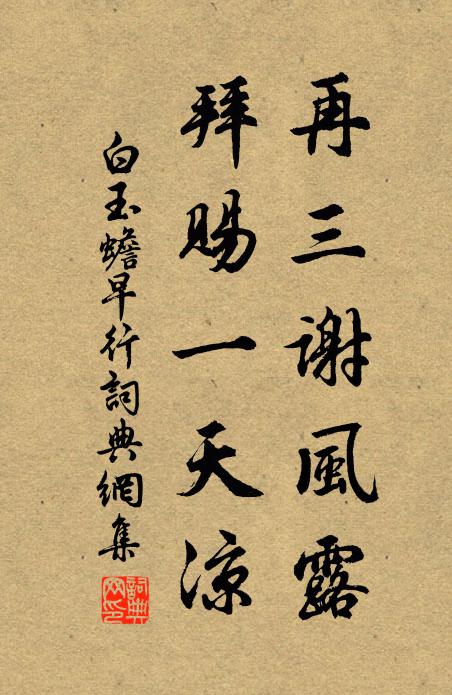 再三謝風露
拜賜一天凉
白玉蟾早行詞典網集
詞典網印